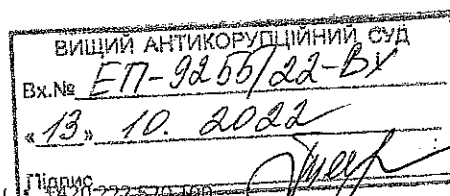 ВИЩИЙ АНТИКОРУПЦІЙНИЙ СУД
Вх.№ ЕП-9255/22-Вх
«13» 10. 2022
Підпис